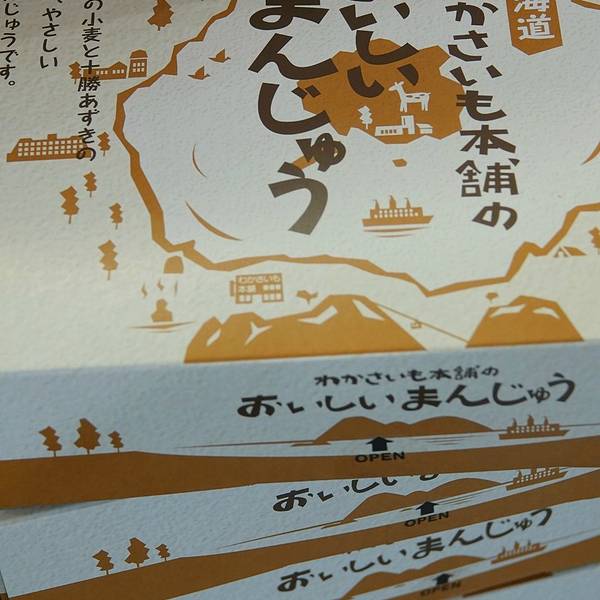 海道
かさいも本舗の
いしい
まんじゅう
の小麦と十勝あずきの
やさしい
じゅうです。
わかさいも
本舗
わかさいも本舗の
おいしいまんじゅう
OPEN
おいしい
OPEN
おいしいまんじゅう
OPEN